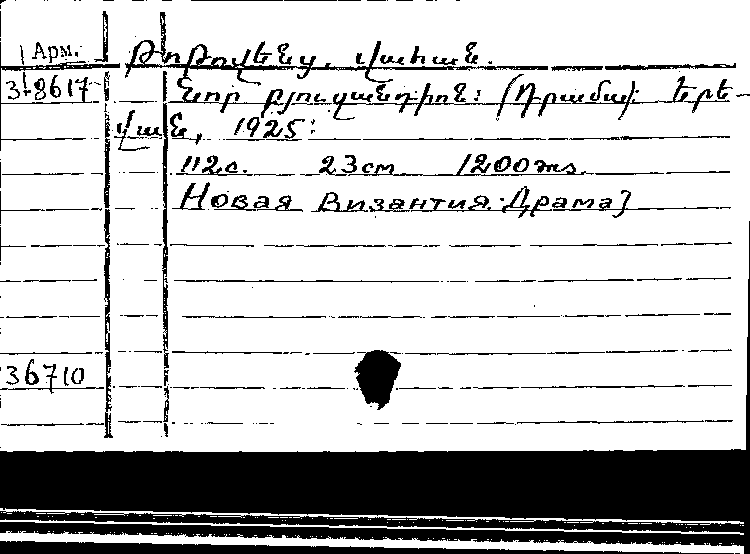 Арм.
Թոթովենց, Վահան.
3-8617
Նոր բյուզանդիոն: (Դրամա): Երե-
վան, 1925:
112с. 23см 1200экз.
Новая Византия. Драма]
36710